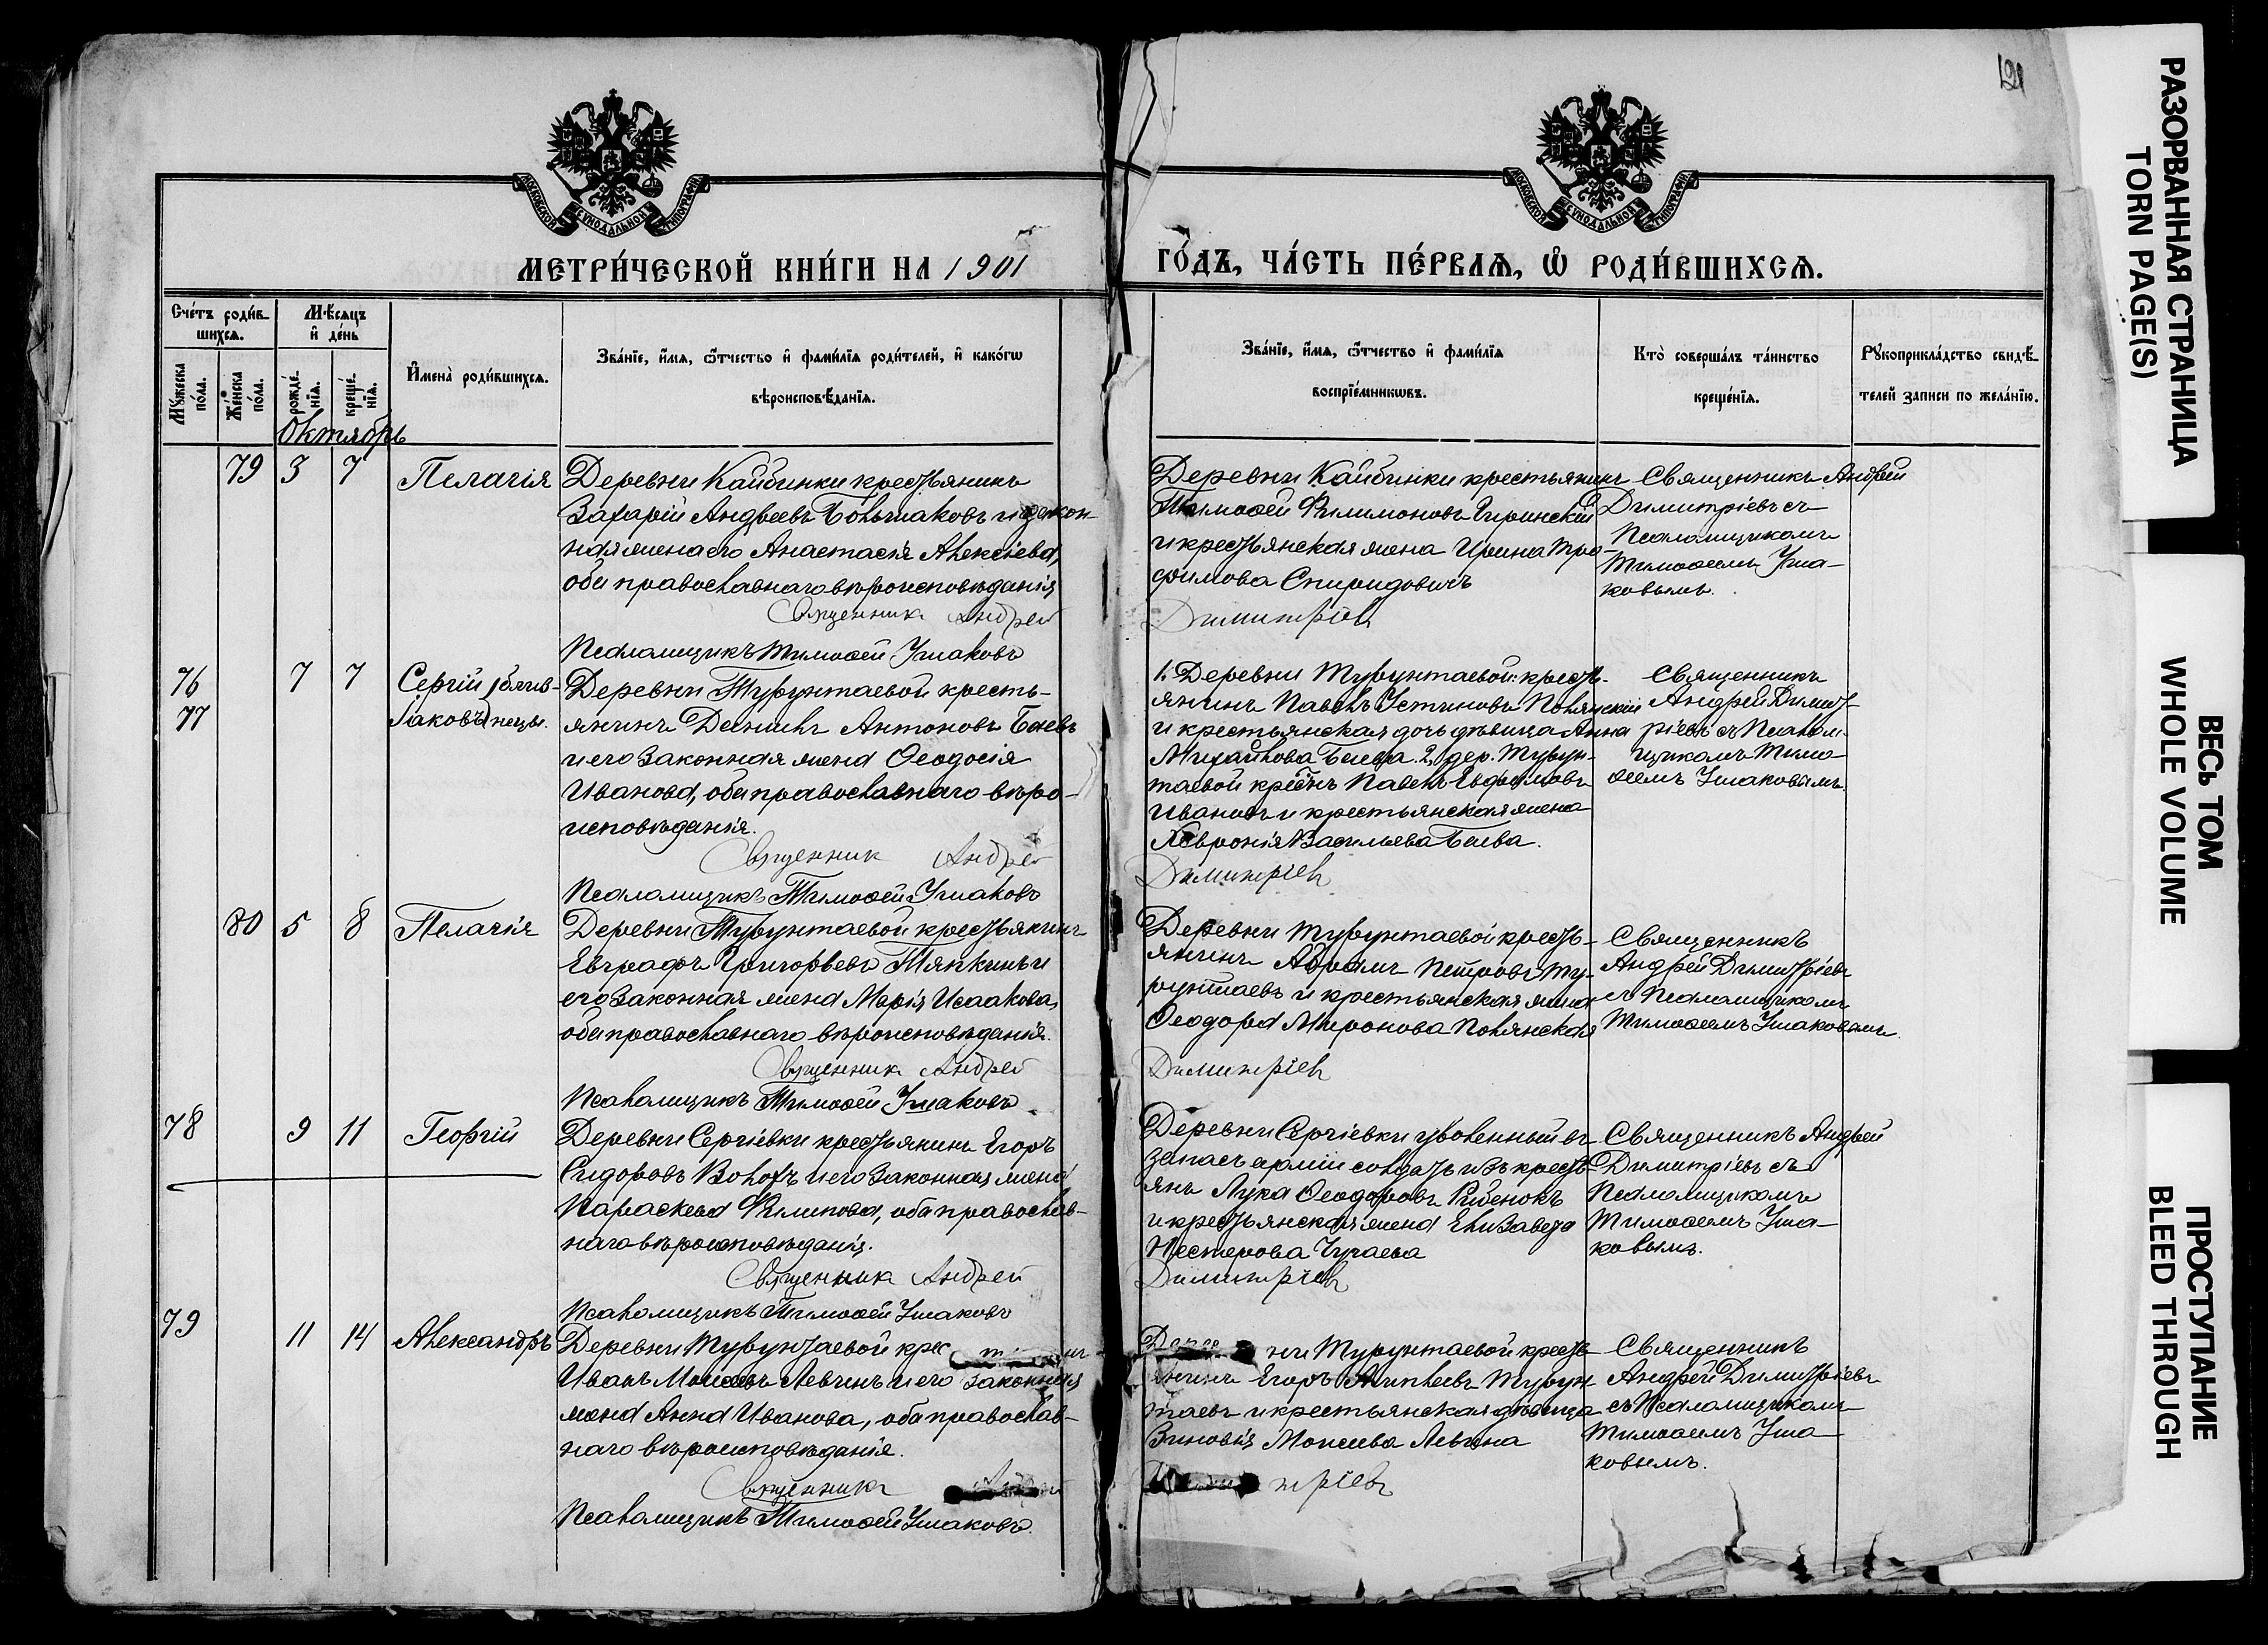 121
МОСКОВСКОЙ СѴНОДАЛЬНОЙ ТИПОГРАФІИ
МОСКОВСКОЙ СѴНОДАЛЬНОЙ ТИПОГРАФІИ
МЕТРИ́ЧЕСКОЙ КНИ́ГИ НА 1901
ГО́ДЪ, ЧА́СТЬ ПЕ́РВАѦ, Ѽ РОДИ́ВШИХСѦ.
Сче́тъ роди́в-
шихсѧ.
Мꙋ́жеска
по́ла.
Же́нска
по́ла.
Мѣ́сѧцъ
и҆ де́нь
рожде́-
нїѧ.
креще́-
нїѧ.
И҆мена̀ роди́вшихсѧ.
Зва́нїе, и҆́мѧ, ѻ҆́тчество и҆ фами́лїѧ роди́телей, и҆ како́гѡ
вѣроисповѣ́данїѧ.
Зва́нїе, и҆́мѧ, ѻ҆́тчество и҆ фами́лїѧ
воспрїе́мникѡвъ.
Кто̀ соверша́лъ та́инство
креще́нїѧ.
Рꙋкоприкла́дство свидѣ́-
телей записи по жела́нїю.
Октябрь
79 3 7 Пелагія
Деревни Кайбинки крестьянинъ
Захарій Андреевъ Большаковъ и закон-
ная жена его Анастасія Алексіева,
оба православнаго вѣроисповѣданія
Священникъ Андрей
Псаломщикъ Тимоѳей Ушаковъ
Деревни Кайбинки крестьянинъ
Тимоѳей Филимоновъ Гиринскій
и крестьянская жена Ирина Тро-
фимова Спиридовичъ
Димитріевъ
Священникъ Андрей
Димитріевъ съ
Псаломщикомъ
Тимоѳеемъ Уша-
ковымъ.
76 7 7 Сергій } близ-
77 Іаковъ } нецы.
Деревни Турунтаевой кресть-
янинъ Даніилъ Антоновъ Баевъ
и его законная жена Ѳеодосія
Иванова, оба православнаго вѣро-
исповѣданія.
Священникъ Андрей
Псаломщикъ Тимоѳей Ушаковъ
1. Деревни Турунтаевой кресть-
янинъ Павелъ Устиновъ Полянскій
и крестьянская дочь дѣвица Анна
Михайлова Баева. 2, дер. Турун-
таевой кре-нъ Павелъ Евфимовъ
Ивановъ и крестьянская жена
Хавронія Васильева Баева.
Димитріевъ
Священникъ
Андрей Димит-
ріевъ съ Псалом-
щикомъ Тимо-
ѳеемъ Ушаковымъ.
80 5 8 Пелагія
Деревни Турунтаевой крестьянинъ
Евграфъ Григорьевъ Тяпкинъ и
его законная жена Марія Исаакова,
оба православнаго вѣроисповѣданія.
Священникъ Андрей
Псаломщикъ Тимоѳей Ушаковъ
Деревни Турунтаевой кресть-
янинъ Абрамъ Петровъ Ту-
рунтаевъ и крестьянская жена
Ѳеодора Миронова Полянская
Димитріевъ
Священникъ
Андрей Димитріевъ
съ Псаломщикомъ
Тимоѳеемъ Ушаковымъ.
78 9 11 Георгій
Деревни Сергіевки крестьянинъ Егоръ
Сидоровъ Волохъ и его законная жена
Параскева Филипова, оба православ-
наго вѣроисповѣданія.
Священникъ Андрей
Псаломщикъ Тимоѳей Ушаковъ
Деревни Сергіевки уволенный въ
запасъ арміи солдатъ изъ кресть-
янъ Лука Ѳеодоровъ Рибенокъ
и крестьянская жена Елизавета
Нестерова Чугаева
Димитріевъ
Священникъ Андрей
Димитріевъ съ
Псаломщикомъ
Тимоѳеемъ Уша-
ковымъ.
79 11 14 Александръ
Деревни Турунтаевой крес
Иванъ Моисеевъ Левинъ и его законная
жена Анна Иванова, оба православ-
наго вѣроисповѣданія.
Священникъ
Псаломщикъ Тимоѳей Ушаковъ.
Деревни Турунтаевой кресть-
янинъ Егоръ Турун-
таевъ и крестьянская дѣвица
Зиновія Моисеева Левина
Димитріевъ
Священникъ
Андрей Димитріевъ
съ Псаломщикомъ
Тимоѳеемъ Уша-
ковымъ.
РАЗОРВАННАЯ СТРАНИЦА
TORN PAGE(S)
ВЕСЬ ТОМ
WHOLE VOLUME
ПРОСТУПАНИЕ
BLEED THROUGH